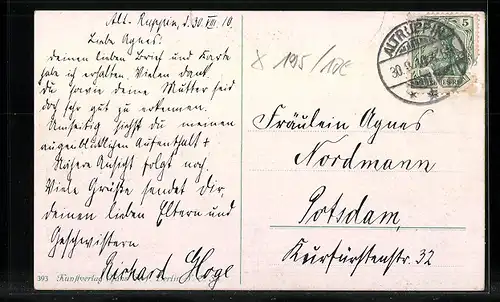 Alt. Ruppin, d. 30. VIII. 10.
Liebe Agnes:
deinen lieben Brief und Karte
hab ich erhalten. Vielen Dank
du sowie deine Mutter seid
doch sehr gut zu erkennen.
Umseitig siehst du meinen
augenblicklichen Aufenthalt
Nähere Ansicht folgt noch
Viele Grüße sendet dir
deinen lieben Eltern und
Geschwistern
Richard Hoge
X 195/17€
ALTRUPPIN
30.8.10
5
Fräulein Agnes
Nordmann
Potsdam,
Kurfürstenstr. 32
393 Kunstverlag Berlin